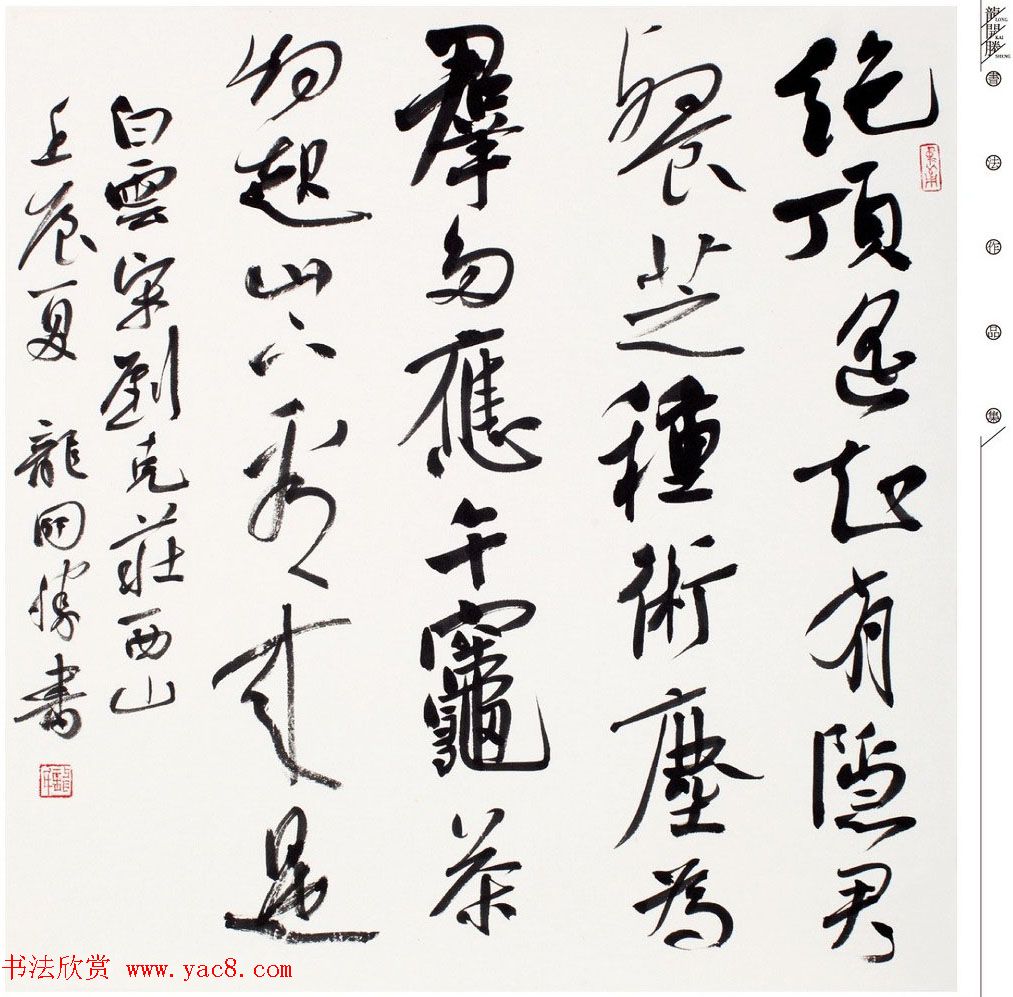 龍開勝
LONG
KAI
SHENG
書法作品集
絕頂遙知有隱君
餐芝種術麈為
羣多應午竈茶
烟起山下看來是
白雲 宋劉克莊西山
壬辰夏 龍開勝書
书法欣赏 www.yac8.com